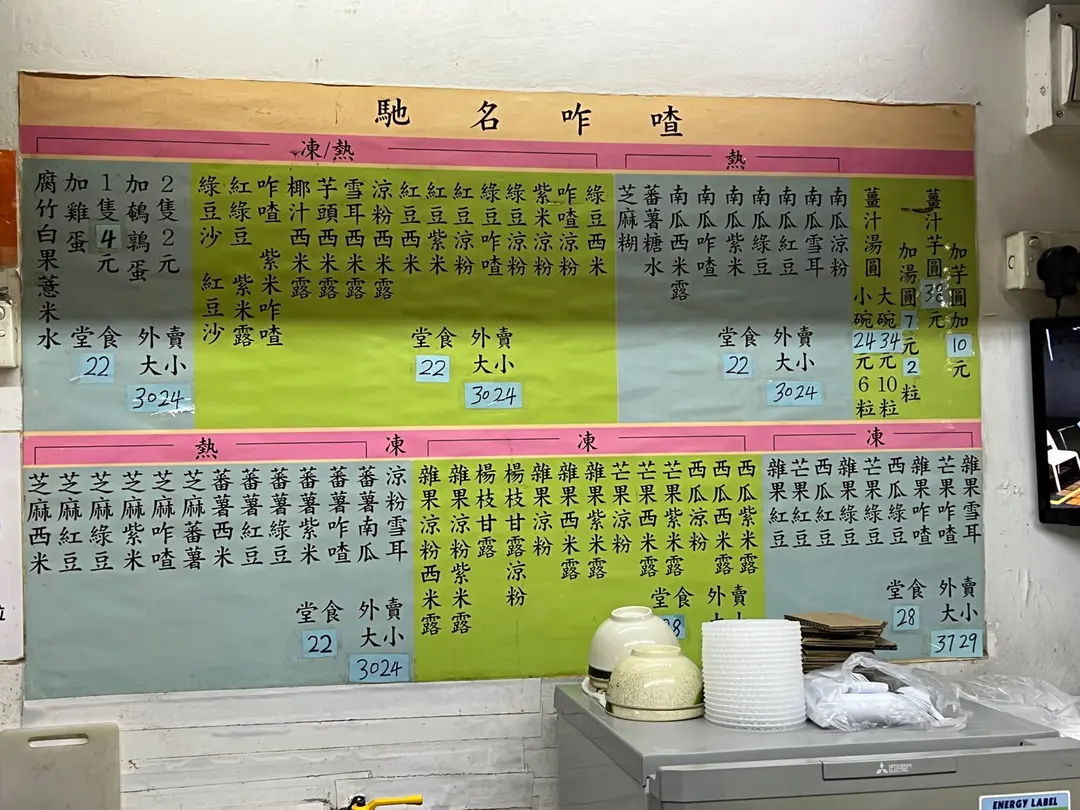 馳名咋喳
凍/熱
熱
腐竹白果薏米水
加雞蛋
1隻4元
加鵪鶉蛋
2隻2元
堂食 外賣
22 大小
30 24
綠豆沙 紅豆沙
紅綠豆 紫米露
咋喳 紫米咋喳
椰汁西米露
芋頭西米露
雪耳西米露
涼粉西米露
紅豆西米
紅豆紫米
紅豆涼粉
綠豆咋喳
綠豆涼粉
紫米涼粉
咋喳涼粉
綠豆西米
堂食 外賣
22 大小
30 24
芝麻糊
蕃薯糖水
南瓜西米露
南瓜咋喳
南瓜紫米
南瓜綠豆
南瓜紅豆
南瓜雪耳
南瓜涼粉
堂食 外賣
22 大小
30 24
薑汁湯圓
小碗24元6粒
大碗34元10粒
加湯圓7元2粒
薑汁芋圓38元
加芋圓加10元
熱
凍
凍
凍
芝麻西米
芝麻紅豆
芝麻綠豆
芝麻紫米
芝麻咋喳
芝麻蕃薯
蕃薯西米
蕃薯紅豆
蕃薯綠豆
蕃薯紫米
蕃薯咋喳
蕃薯南瓜
涼粉雪耳
堂食 外賣
22 大小
30 24
雜果涼粉西米露
雜果涼粉紫米露
楊枝甘露
楊枝甘露涼粉
雜果涼粉
雜果西米露
雜果紫米露
芒果涼粉
芒果西米露
芒果紫米露
西瓜涼粉
西瓜西米露
西瓜紫米露
堂食 外賣
雜果紅豆
芒果紅豆
西瓜紅豆
雜果綠豆
芒果綠豆
西瓜綠豆
雜果咋喳
芒果咋喳
雜果雪耳
堂食 外賣
28 大小
37 29
MITSUBISHI ELECTRIC
ENERGY LABEL